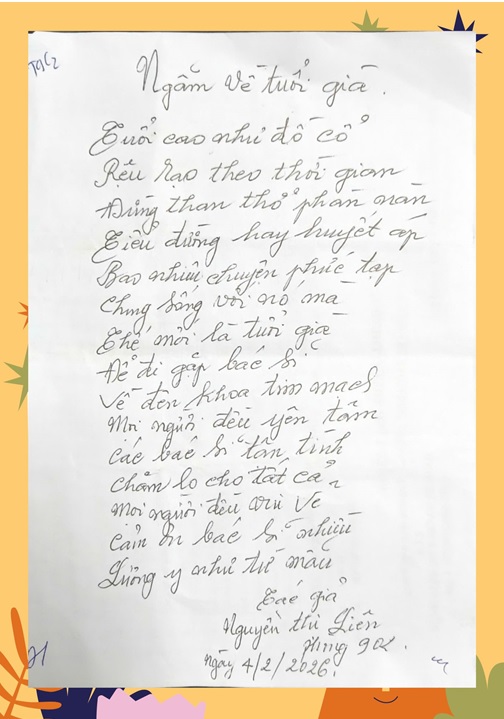 Ngẫm về tuổi già.
Tuổi cao như đồ cổ
Rệu rạo theo thời gian
Đừng than thở phàn nàn
Tiểu đường hay huyết áp
Bao nhiêu chuyện phức tạp
Chung sống với nó mà
Thế mới là tuổi già
Để đi gặp bác sĩ
Về đến khoa tim mạch
Mọi người đều yên tâm
Các bác sĩ tận tình
Chăm lo cho tất cả
Mọi người đều vui vẻ
Cảm ơn bác sĩ nhiều
Lương y như từ mẫu
Tác giả
Nguyễn thị Liên
Phòng 902.
Ngày 4/2/2026.